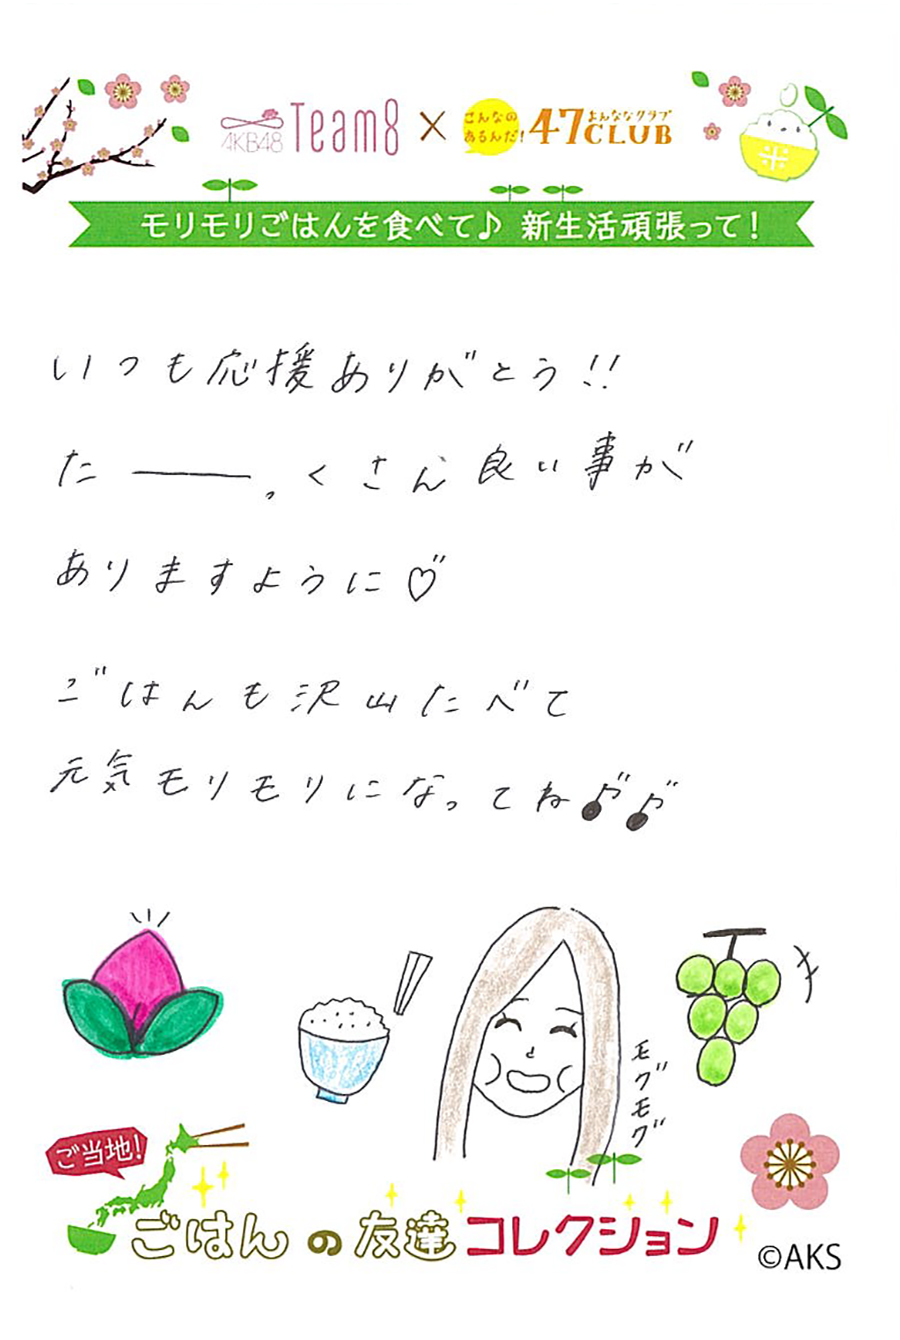 AKB48 Team8 × こんなのあるんだ! 47CLUB よんななクラブ
米
モリモリごはんを食べて♪ 新生活頑張って!
いつも応援ありがとう!!
た――――、くさん良い事が
ありますように♡"
ごはんも沢山たべて
元気モリモリになってね♪"♪"
モグモグ
ご当地!
ごはんの友達コレクション
©AKS